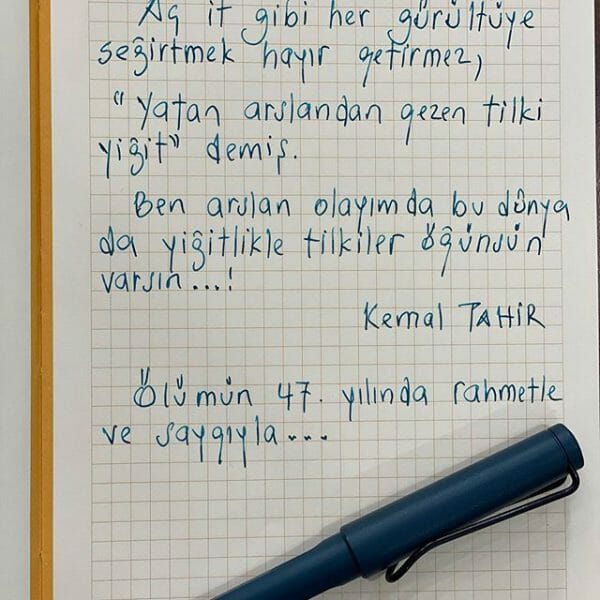 Aç it gibi her gürültüye
seğirtmek hayır getirmez,
"Yatan arslandan gezen tilki
yiğit" demiş.
Ben arslan olayımda bu dünya
da yiğitlikle tilkiler öğünsün
varsın...!
Kemal TAHİR
Ölümün 47. yılında rahmetle
ve saygıyla...